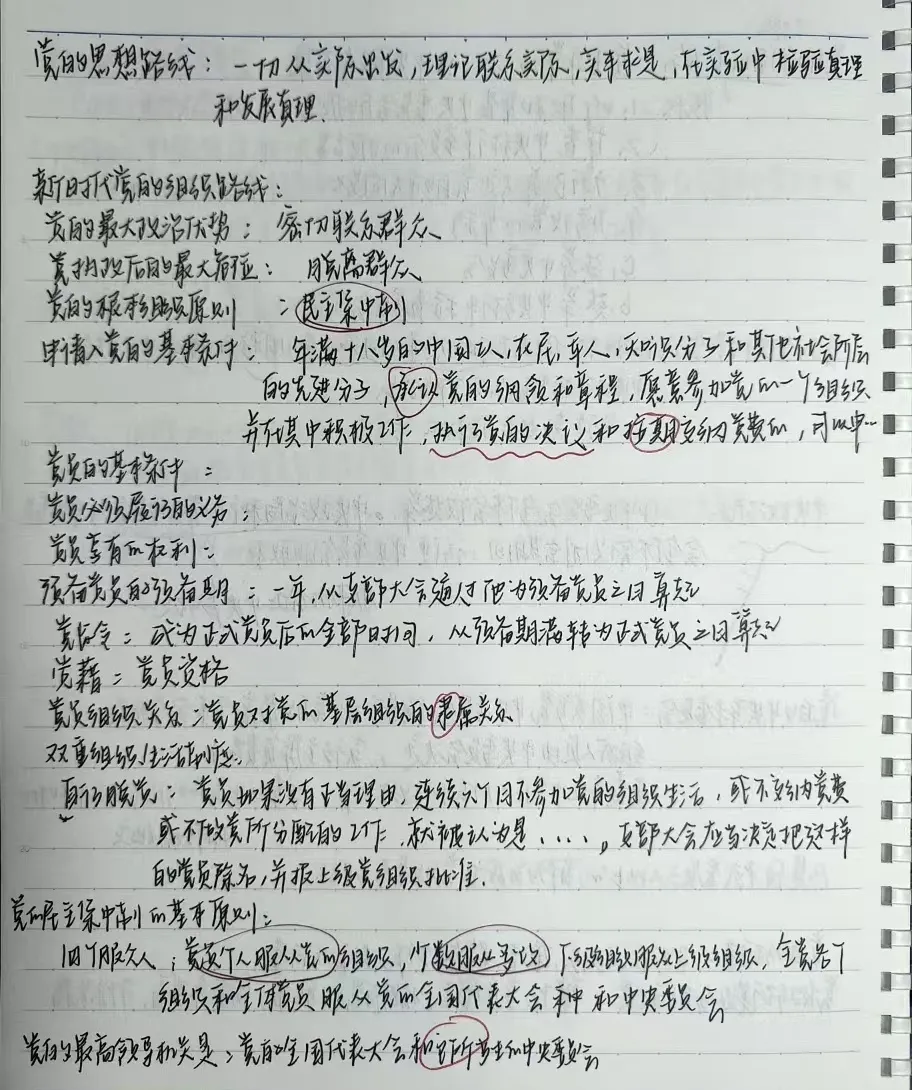 党的思想路线：一切从实际出发，理论联系实际，实事求是，在实验中检验真理
和发展真理.
新时代党的组织路线：
党的最大政治优势：密切联系群众
党执政后的最大危险：脱离群众
党的根本组织原则：民主集中制
申请入党的基本条件：年满十八岁的中国工人，农民，军人，知识分子和其他社会阶层
的先进分子，承认党的纲领和章程，愿意参加党的一个组织
并在其中积极工作，执行党的决议和按期交纳党费的，可以申…
党员的基本条件：
党员必须履行的义务：
党员享有的权利：
预备党员的预备期：一年，从支部大会通过他为预备党员之日算起
党龄：成为正式党员后的全部时间，从预备期满转为正式党员之日算起
党籍：党员资格
党员组织关系：党员对党的基层组织的隶属关系
双重组织生活制度：
自行脱党：党员如果没有正当理由，连续六个月不参加党的组织生活，或不交纳党费
或不做党所分配的工作，就被认为是....。支部大会应当决定把这样
的党员除名，并报上级党组织批准.
党的民主集中制的基本原则：
四个服从：党员个人服从党的组织，少数服从多数，下级组织服从上级组织，全党各个
组织和全体党员服从党的全国代表大会和中央委员会
党的最高领导机关是：党的全国代表大会和它所产生的中央委员会